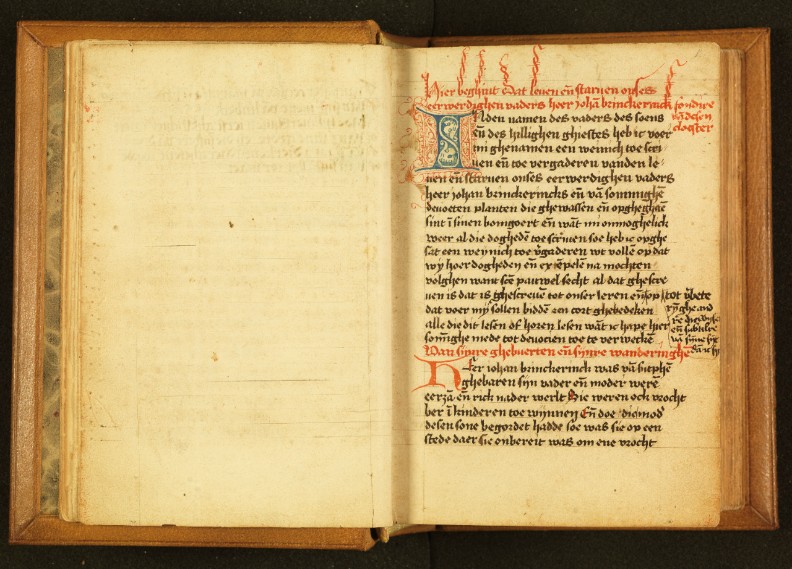 Hier beghint dat leuen eñ staruen onses
eerwerdighen vaders heer johã brinckerinck fondire
vã desen
cloester
INden namen des vaders des soens
eñ des hillighen ghiestes heb ic voer
mi ghenamen een weinich toe scri
uen eñ toe vergaderen vanden le-
uen eñ staruen onses eerwerdighen vaders
heer johan brinckerincks eñ vã sommighẽ
deuoeten planten die ghewassen eñ opgheghaẽ
sint ĩ sinen bomgoert eñ wãt mi onmoghelick
weer al die doghedẽ toe scriuen soe heb ic opghe
sat een weynich toe v̄gaderen wt vollẽ op dat
wy hoer dogheden eñ exẽpelẽ na mochten
volghen want sc̃e pauwel secht al dat ghescre
uen is dat is ghescreuẽ tot onser leren eñ op
dat voer my sollen biddẽ een cort ghebedeken
alle die dit lesen of horen lesen wãt ic hape hier
som̃ighe mede tot deuocien toe te verweckẽ
tot v̄bete
rỹghe and
eñ subtilre
vã sinne
Van synre ghebuerten eñ synre wanderinghẽ
HEer iohan brinckerinck was vã sutphẽ
ghebaren sijn vader eñ moder werẽ
eerzã eñ rick nader werlt Die weren ock vrocht
ber ĩ kinderen toe wynnen Eñ doe die mod͛
desen sone begordet hadde soe was sie op een
stede daer sie onbereit was om ene vrocht